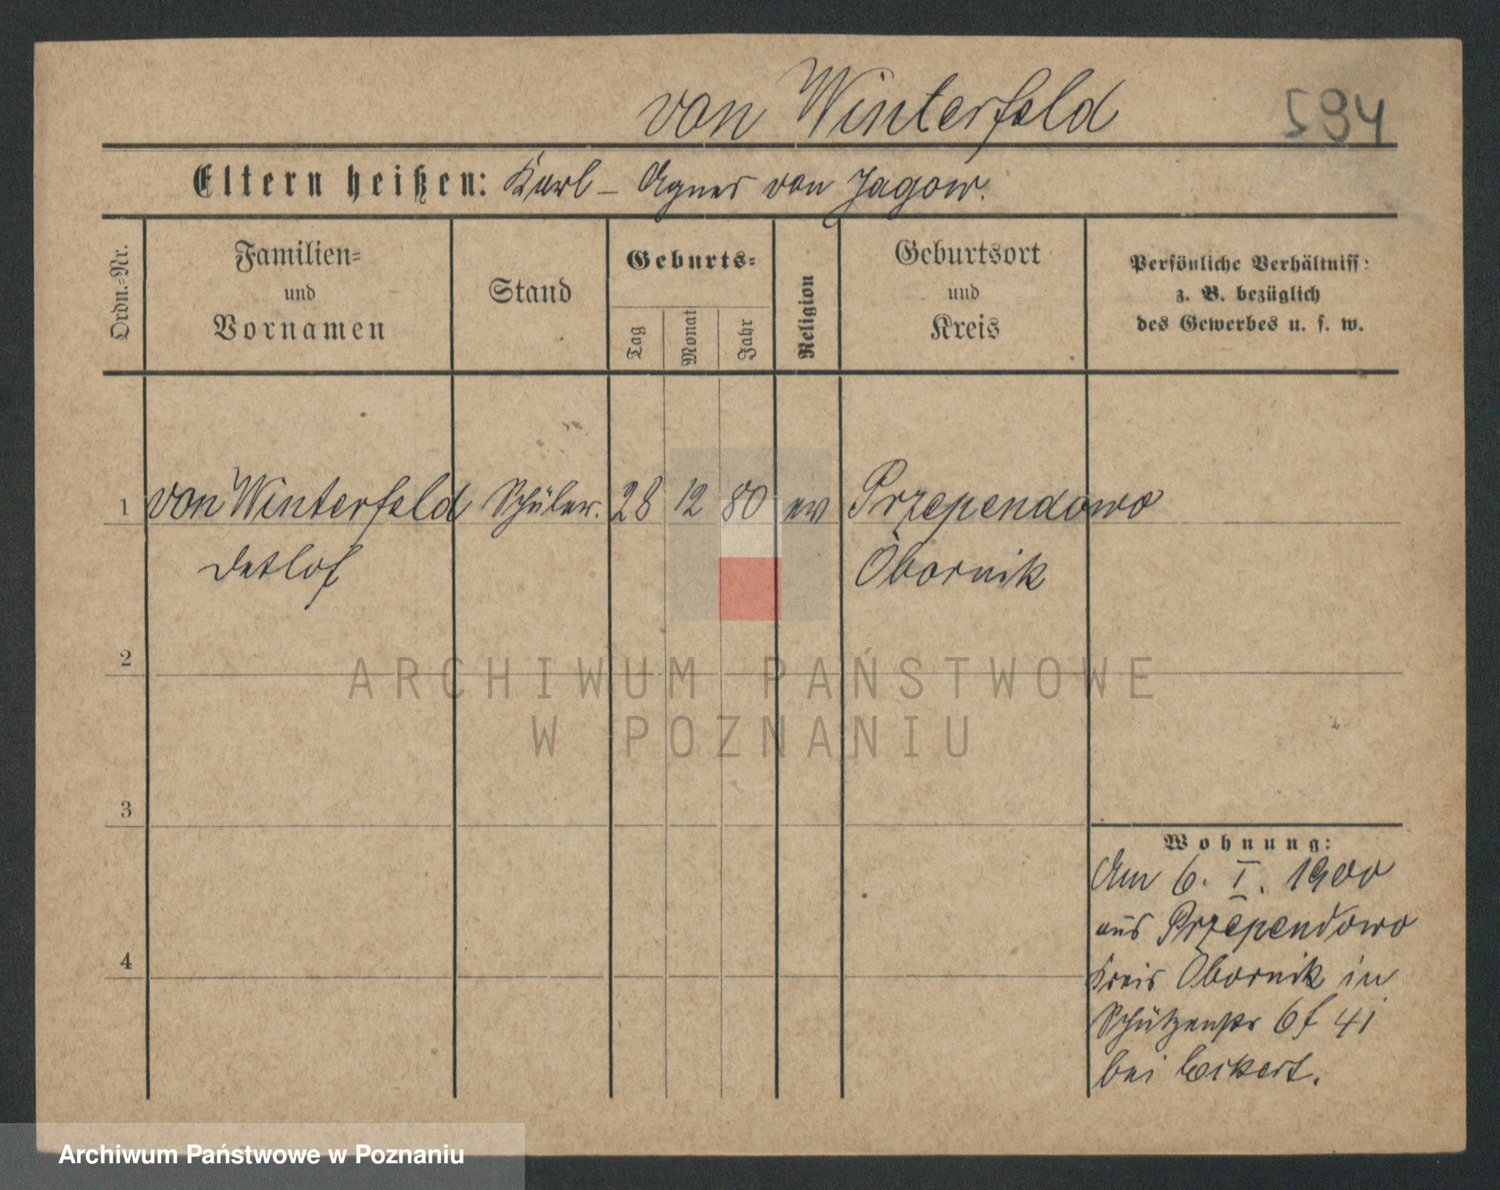 von Winterfeld 594
Eltern heißen: Karl – Agnes von Jagow.
Ordn.-Nr.
Familien-
und
Vornamen
Stand
Geburts-
Tag
Monat
Jahr
Religion
Geburtsort
und
Kreis
Persönliche Verhältniss:
z. B. bezüglich
des Gewerbes u. s. w.
1 von Winterfeld Schüler. 28 12 80 ev Przependowo
Detlof Obornik
2
ARCHIWUM PAŃSTWOWE
W POZNANIU
3
Wohnung:
Am 6. I. 1900
aus Przependowo
4
Kreis Obornik in
Schützenstr 6f 41
bei Eckert.
Archiwum Państwowe w Poznaniu